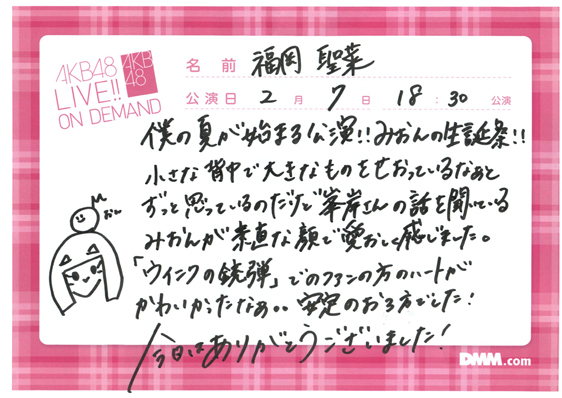 AKB48
LIVE!!
ON DEMAND
AKB
48
名前 福岡 聖菜
公演日 2月 7日 18:30 公演
僕の夏が始まる公演!!みおんの生誕祭!!
小さな背中で大きなものをせおっているなぁと
ずっと思っているのだけど峯岸さんの話を聞いている
みおんが素直な顔で愛おしく感じました。
「ウインクの銃弾」でのファンの方のハートが
かわいかったなぁ。。安定のおろ方でした!
今日はありがとうございました!
DMM.com